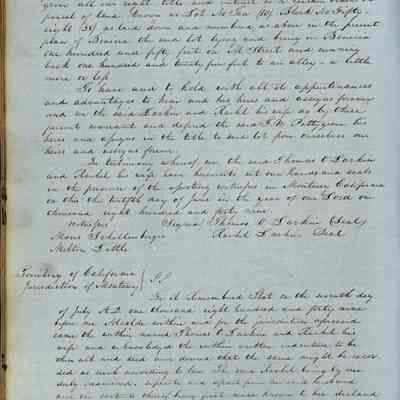 given all our right title and interest to a certain
parcel of land known as Lot No Ten (10) Block No Fifty
eight (58) as laid down and numbered as above in the present
plan of Benicia the said lot lying and being in Benicia
one hundred and fifty feet on M Street and running
back one hundred and twenty five feet to an alley a little
more or less
To have and to hold with all the appurtenances
and advantages to him and his heirs and assigns forever
and we the said Larkin and Rachel his wife do by these
presents warrant and defend the said
heirs and assigns in the title to said lot from ourselves our
heirs and assigns forever.
In testimony whereof we the said Thomas O Larkin
and Rachel his wife have hereunto set our hands and seals
in the presence of the witnesses in Monterey California
on this the twelfth day of June in the year of our Lord one
thousand eight hundred and forty nine
Witnesses Signed Thomas O Larkin (Seal)
Moses Schellenberger Rachel Larkin Seal
Milton Little
Territory of California
Jurisdiction of Monterey } S.S.
Be it Remembered That on the seventh day
of July A.D. one thousand eight hundred and forty nine
before me Alcalde within and for the jurisdiction aforesaid
came the within named Thomas O Larkin and Rachel his
wife and acknowledged the within written indenture to be
their act and deed and desired that the same might be recor
ded as such according to law The said Rachel being by me
duly examined separate and apart from her said husband
and the contents being first made known to her declared